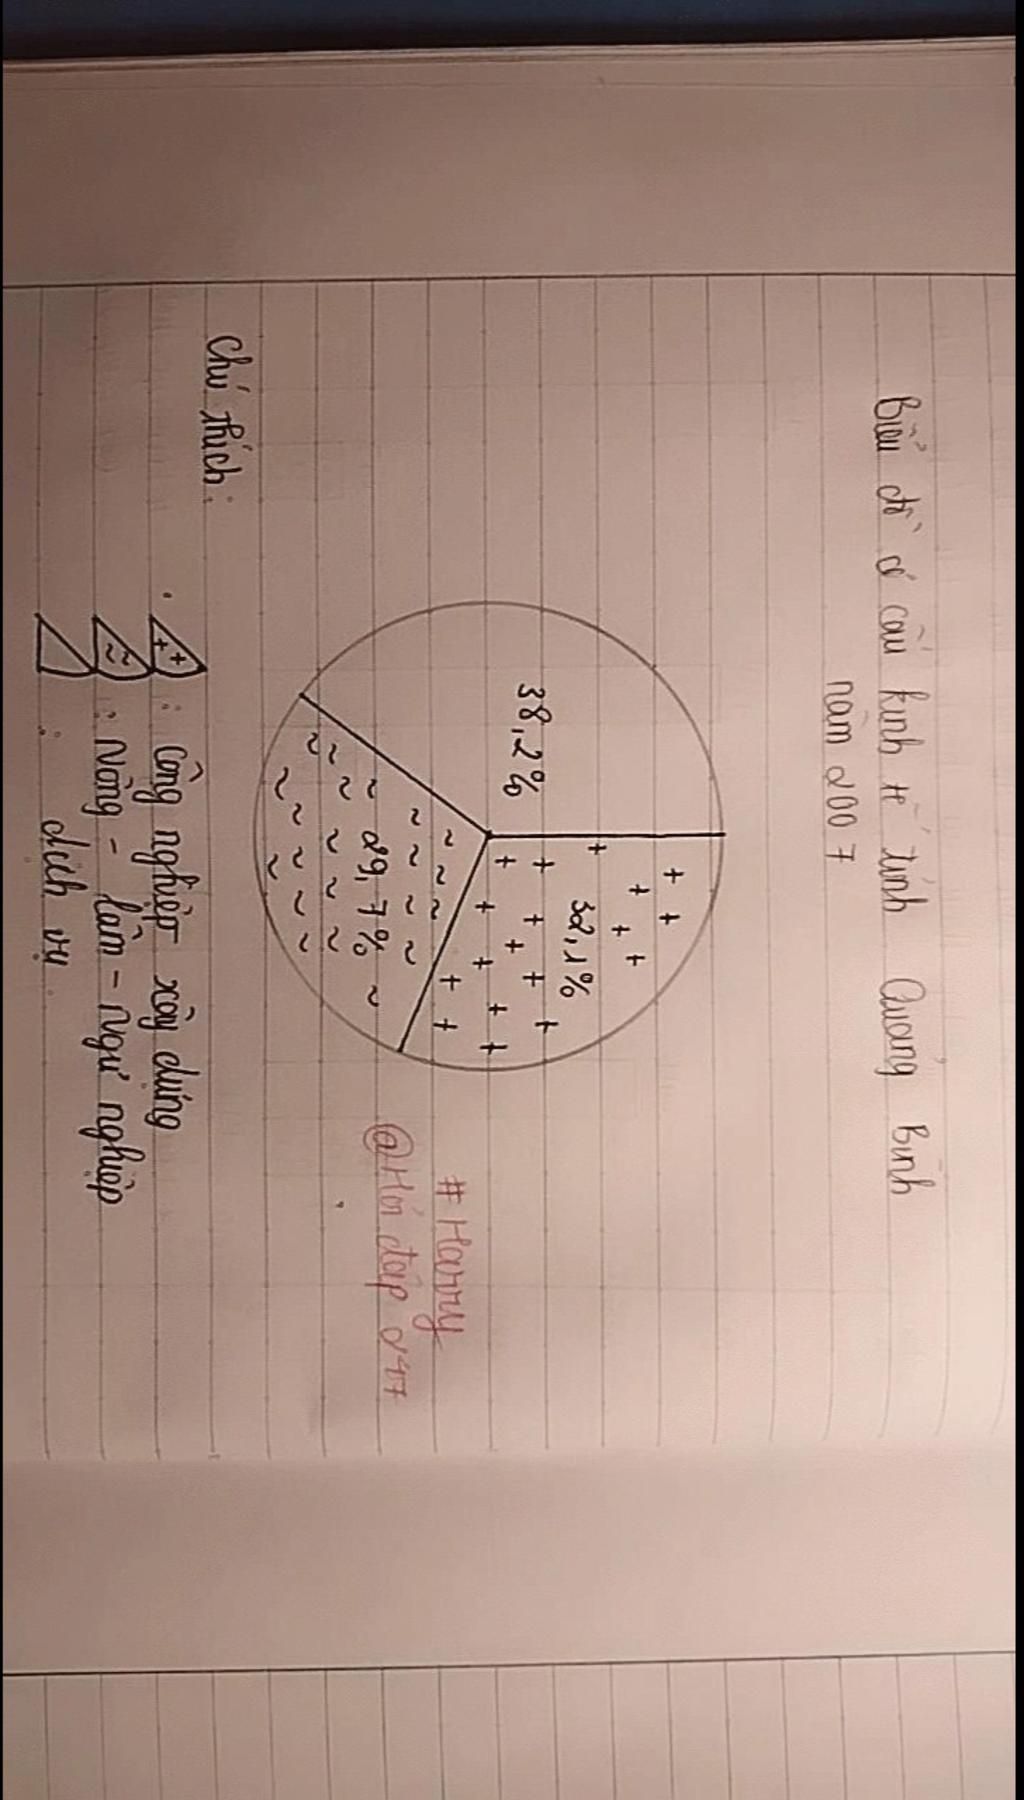 Biểu đồ cơ cấu kinh tế tỉnh Quảng Bình
năm 2007
38,2%
32,1%
29,7%
# Harry
@Hỏi đáp 247
Chú thích:
: Công nghiệp xây dựng
: Nông - Lâm - Ngư nghiệp
: dịch vụ